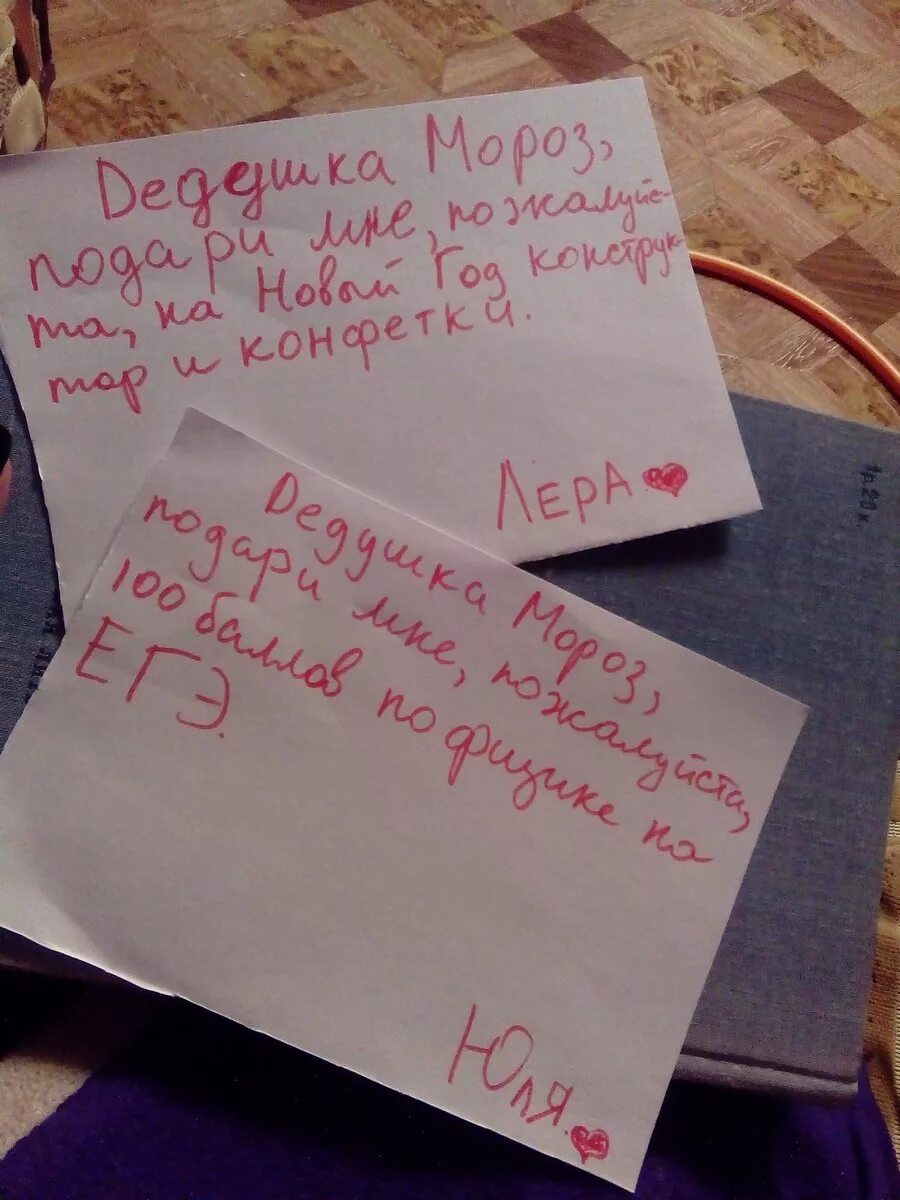 Дедушка Мороз,
подари мне, пожалуйс-
та, на Новый Год конструк-
тор и конфетки.
ЛЕРА
Дедушка Мороз,
подари мне, пожалуйста,
100 баллов по физике на
ЕГЭ.
Юля
1р.20к